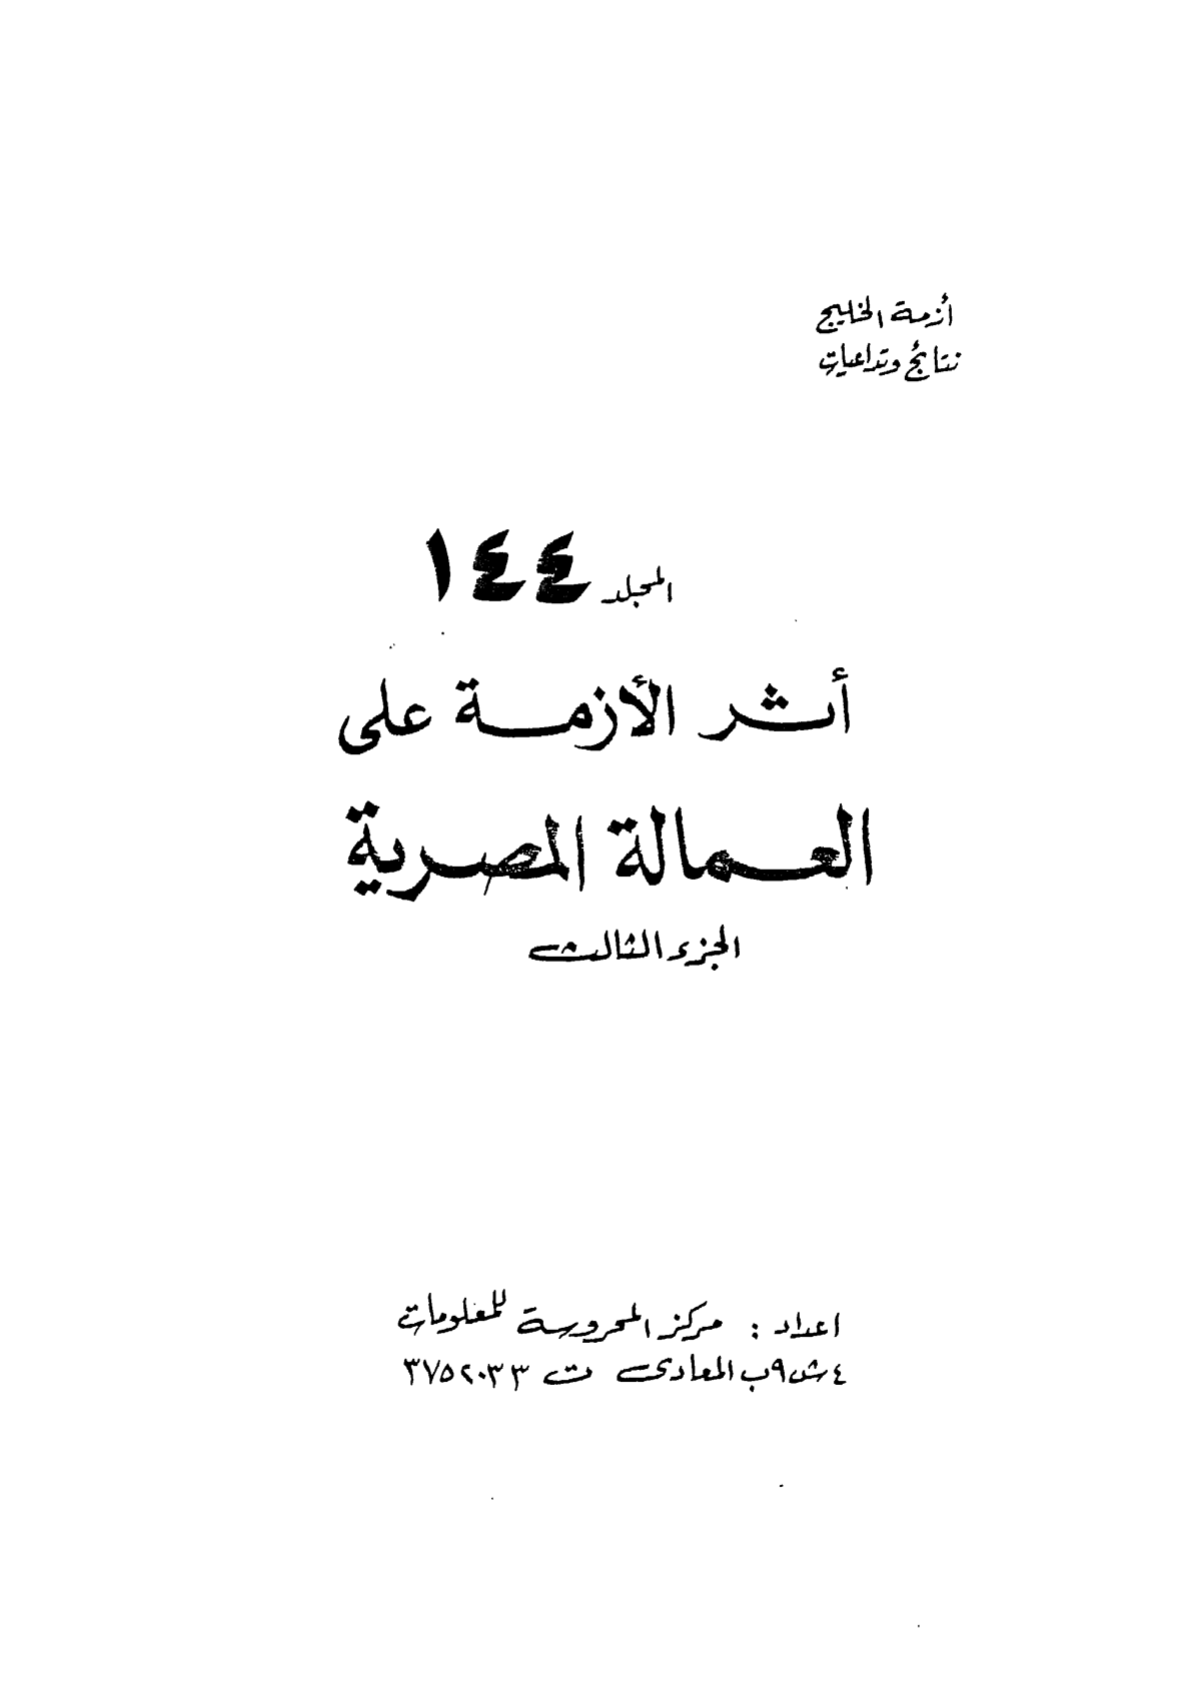 أزمة الخليج
نتائج وتداعيات
المجلد ١٤٤
أثر الأزمة على
العمالة المصرية
الجزء الثالث
اعداد : مركز المحروسة للمعلومات
٤ ش ٩ب المعادى ت ٣٧٥٢٠٣٣